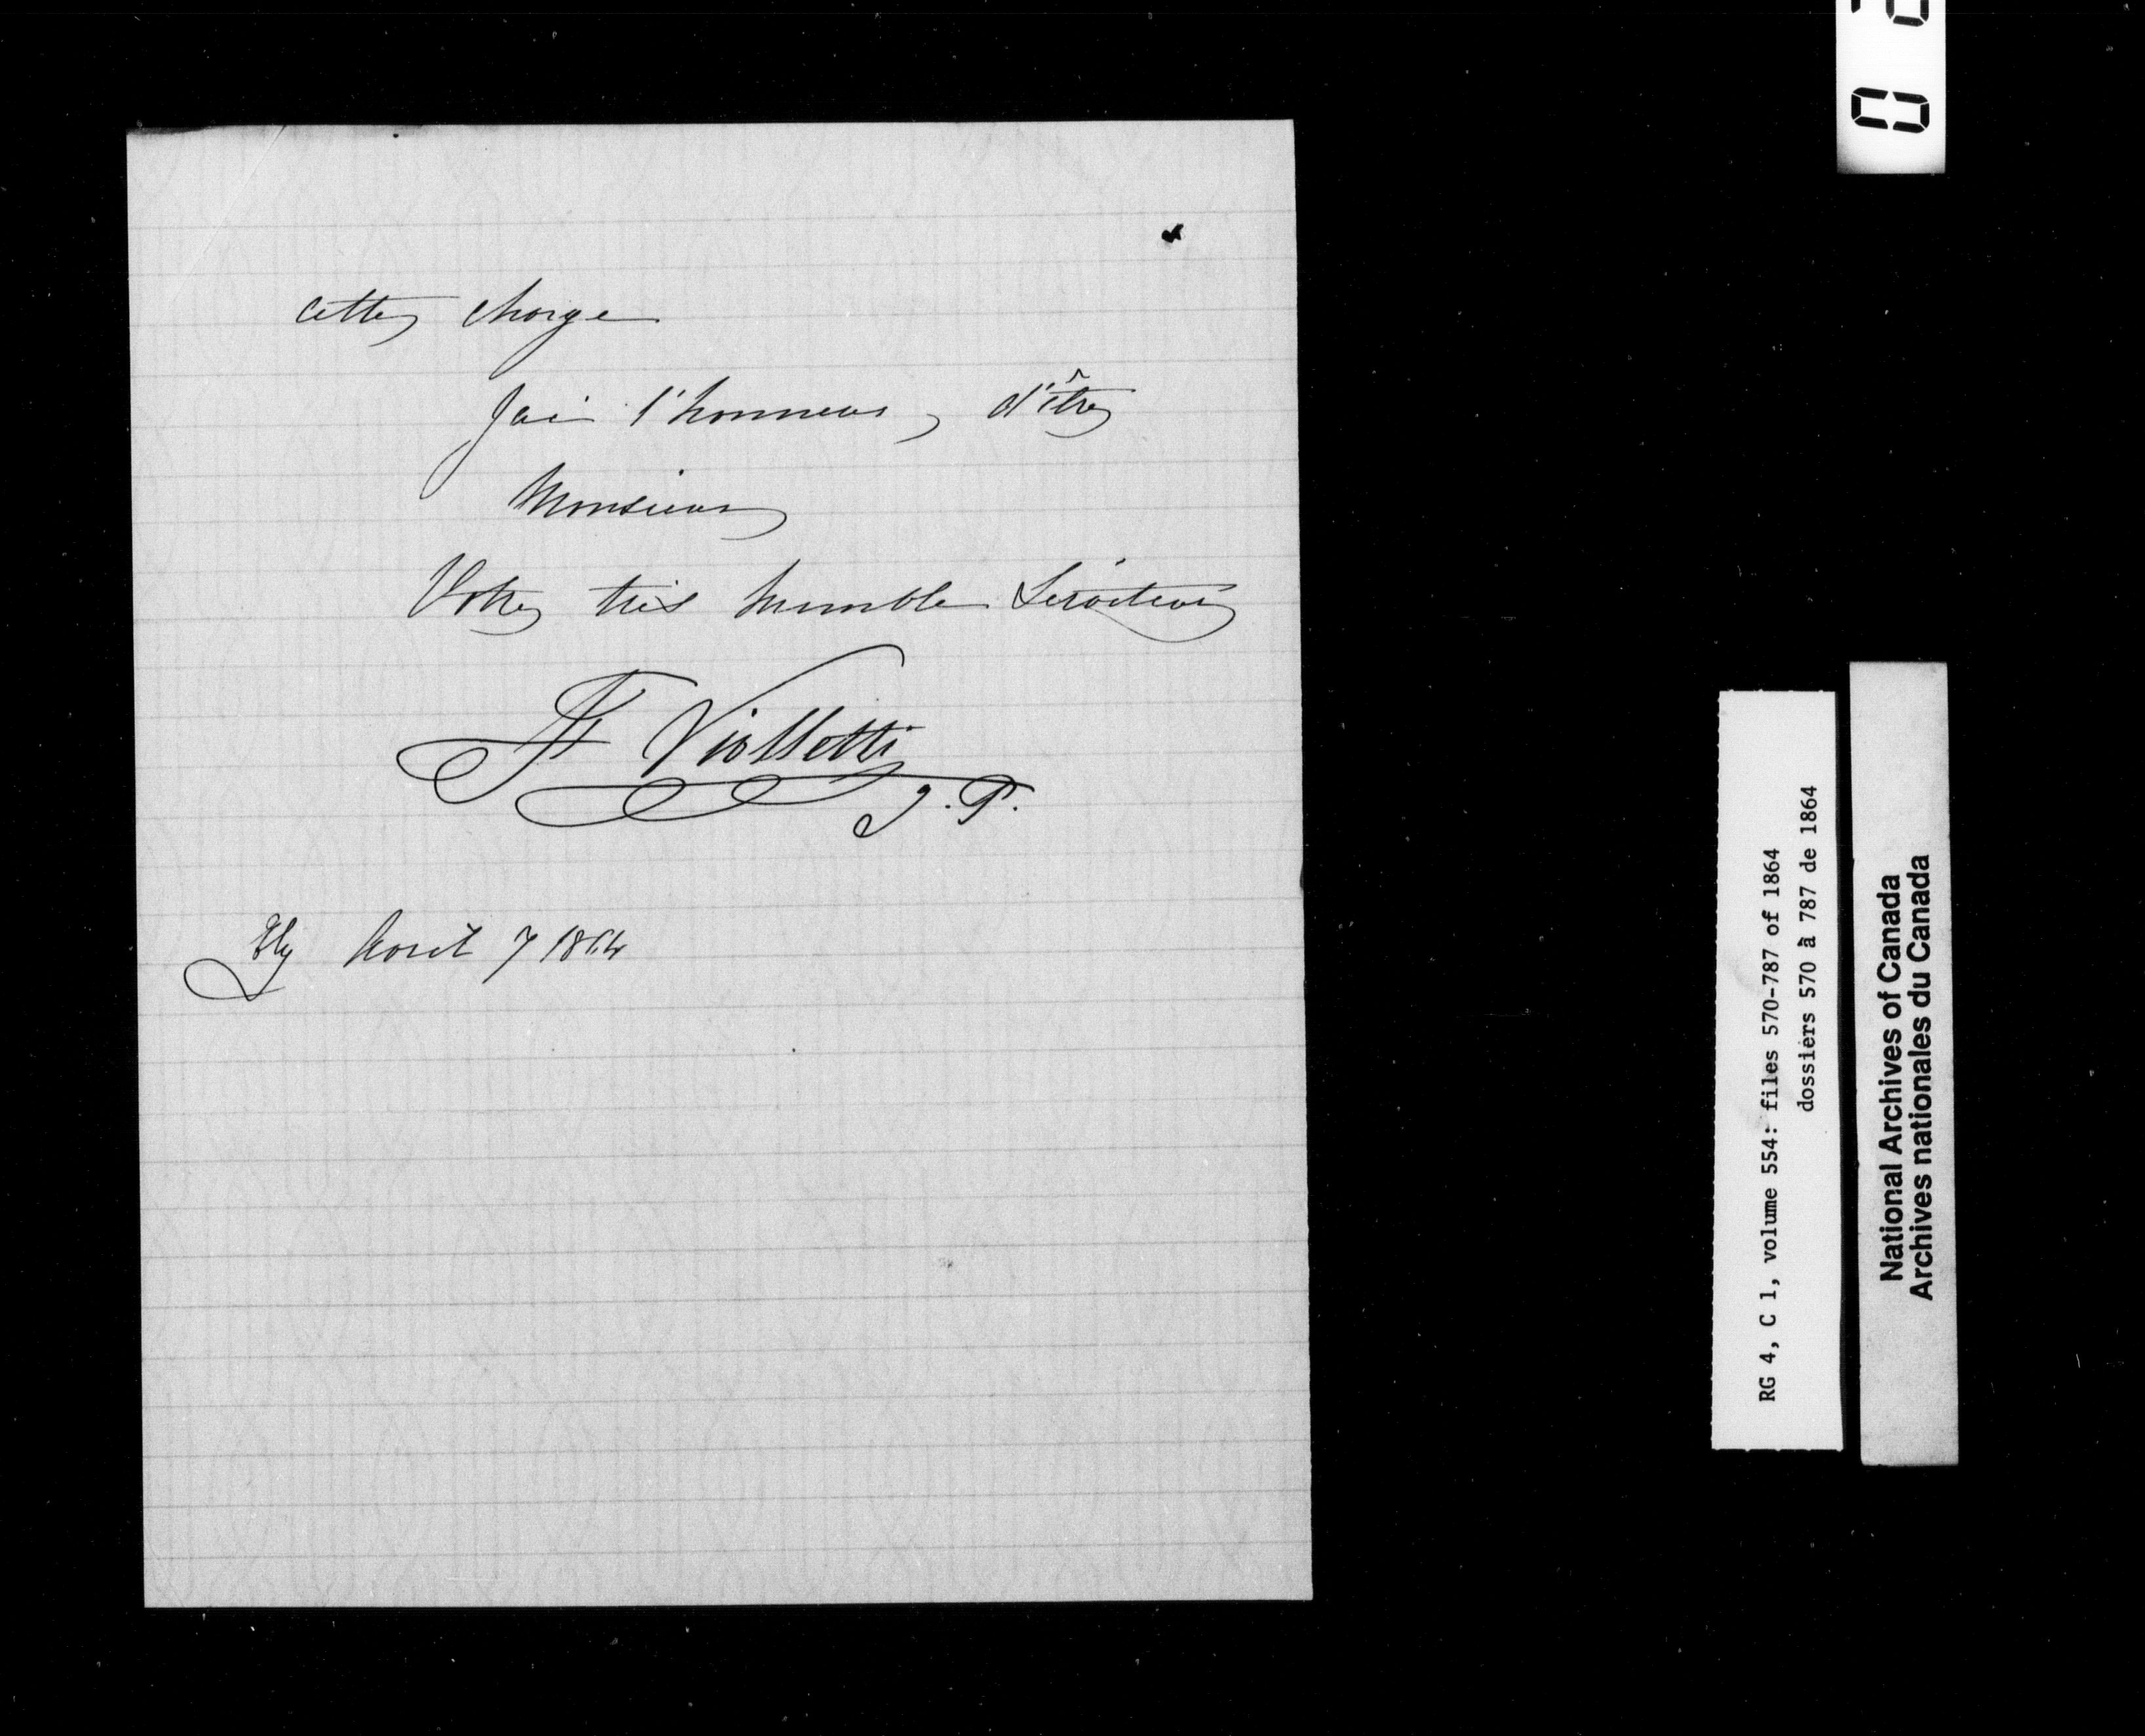 cette charge
Jai l'honneur, d'être
Monsieur
Votre très humble Serviteur
F Viollette
J. P.
Ely Avril 7 1864
RG 4, C 1, volume 554: files 570-787 of 1864
dossiers 570 à 787 de 1864
National Archives of Canada
Archives nationales du Canada